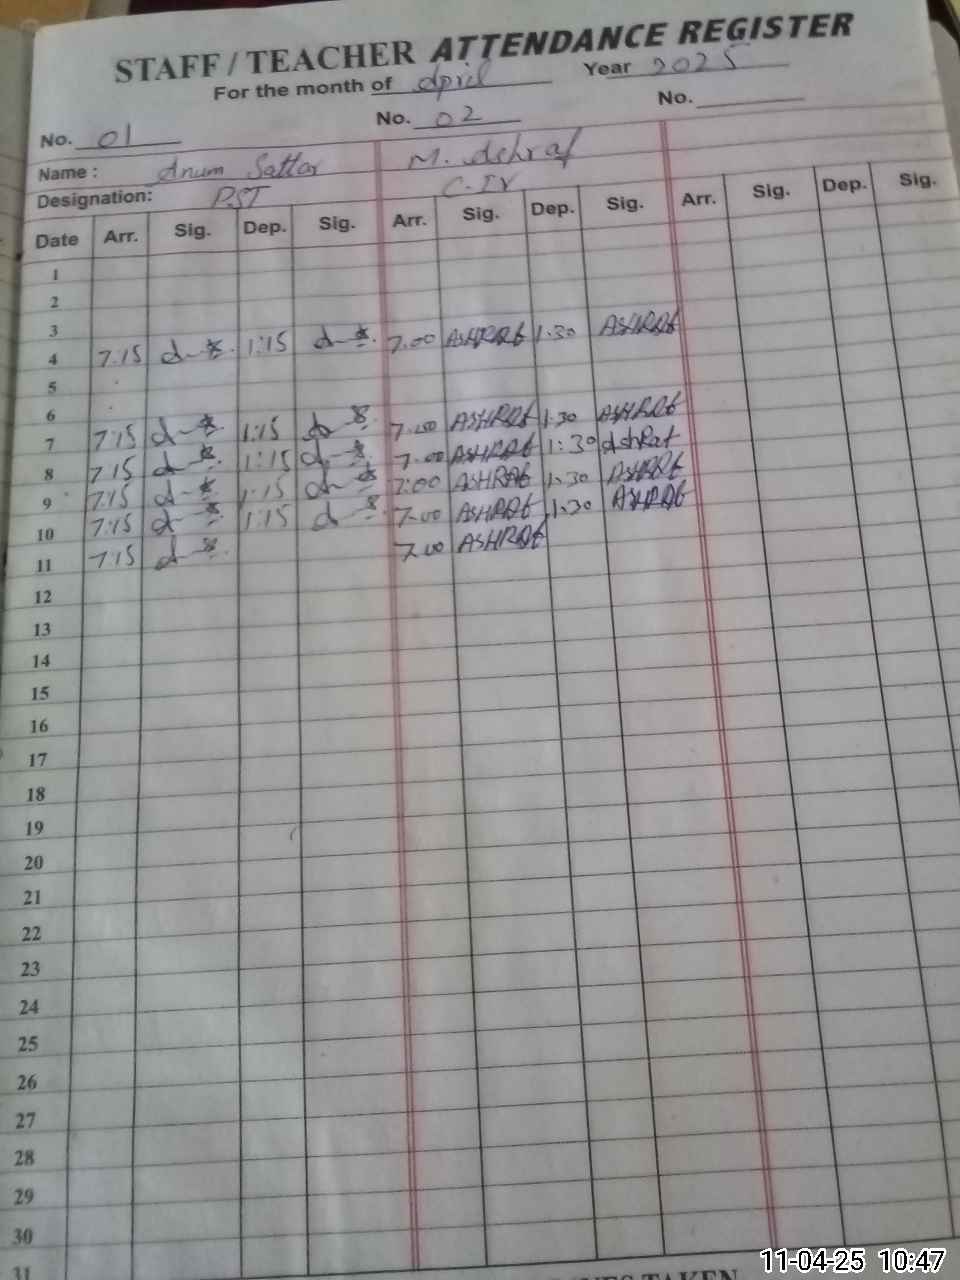 STAFF / TEACHER ATTENDANCE REGISTER
For the month of April Year 2025
No. 01 No. 02 No.
Name : Anum Sattar M. Ashraf
Designation: PST C.IV
Date Arr. Sig. Dep. Sig. Arr. Sig. Dep. Sig. Arr. Sig. Dep. Sig.
1
2
3
4 7:15 1:15 7.00 ASHRAf 1.30 ASHRAf
5
6
7 7:15 1:15 7.00 ASHRAf 1.30 ASHRAf
8 7:15 1:15 7.00 ASHRAf 1:30 AshRaf
9 7:15 1:15 7:00 ASHRAf 1.30 ASHRAf
10 7:15 1:15 7.00 ASHRAf 1.30 ASHRAf
11 7:15 7.00 ASHRAf
12
13
14
15
16
17
18
19
20
21
22
23
24
25
26
27
28
29
30
31
11-04-25 10:47